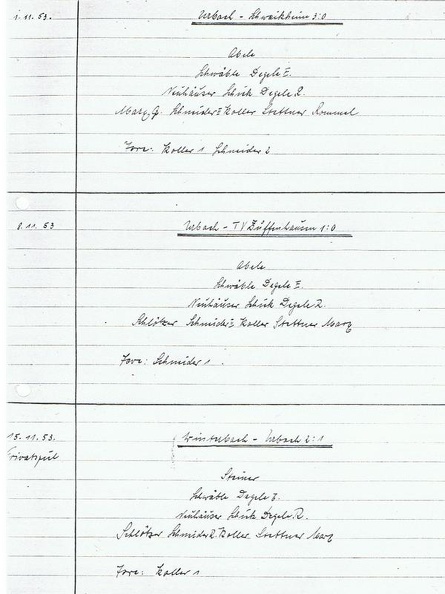 1.11.53. Urbach - Schwaikheim 3:0
Abele
Schwäble Degele E.
Neuhäuser Schick Degele R.
Marg. G. Schneider Koller Stettner Rommel
Tore: Koller 1 Schneider 2
8.11.53 Urbach - TV Zuffenhausen 1:0
Abele
Schwäble Degele E.
Neuhäuser Schick Degele R.
Schlötzer Schneider Koller Stettner Marg
Tore: Schneider 1.
15.11.53. Winterbach - Urbach 2:1
Privatspiel
Steiner
Schwäble Degele E.
Neuhäuser Schick Degele R.
Schlötzer Schneider R. Koller Stettner Marg
Tore: Koller 1